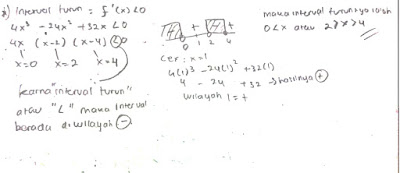 Interval turun : f'(x) < 0
4x³ - 24x² + 32x < 0
4x (x-2) (x-4) < 0
x=0 x=2 x=4
karna "interval turun"
atau "<" maka interval
berada di wilayah ⊖
+ +
0 1 2 4
cek : x=1
4(1)³ - 24(1)² + 32(1)
4 - 24 + 32 → hasilnya ⊕
wilayah 1 = +
maka interval turunnya ialah
0 < x atau 2 > x > 4